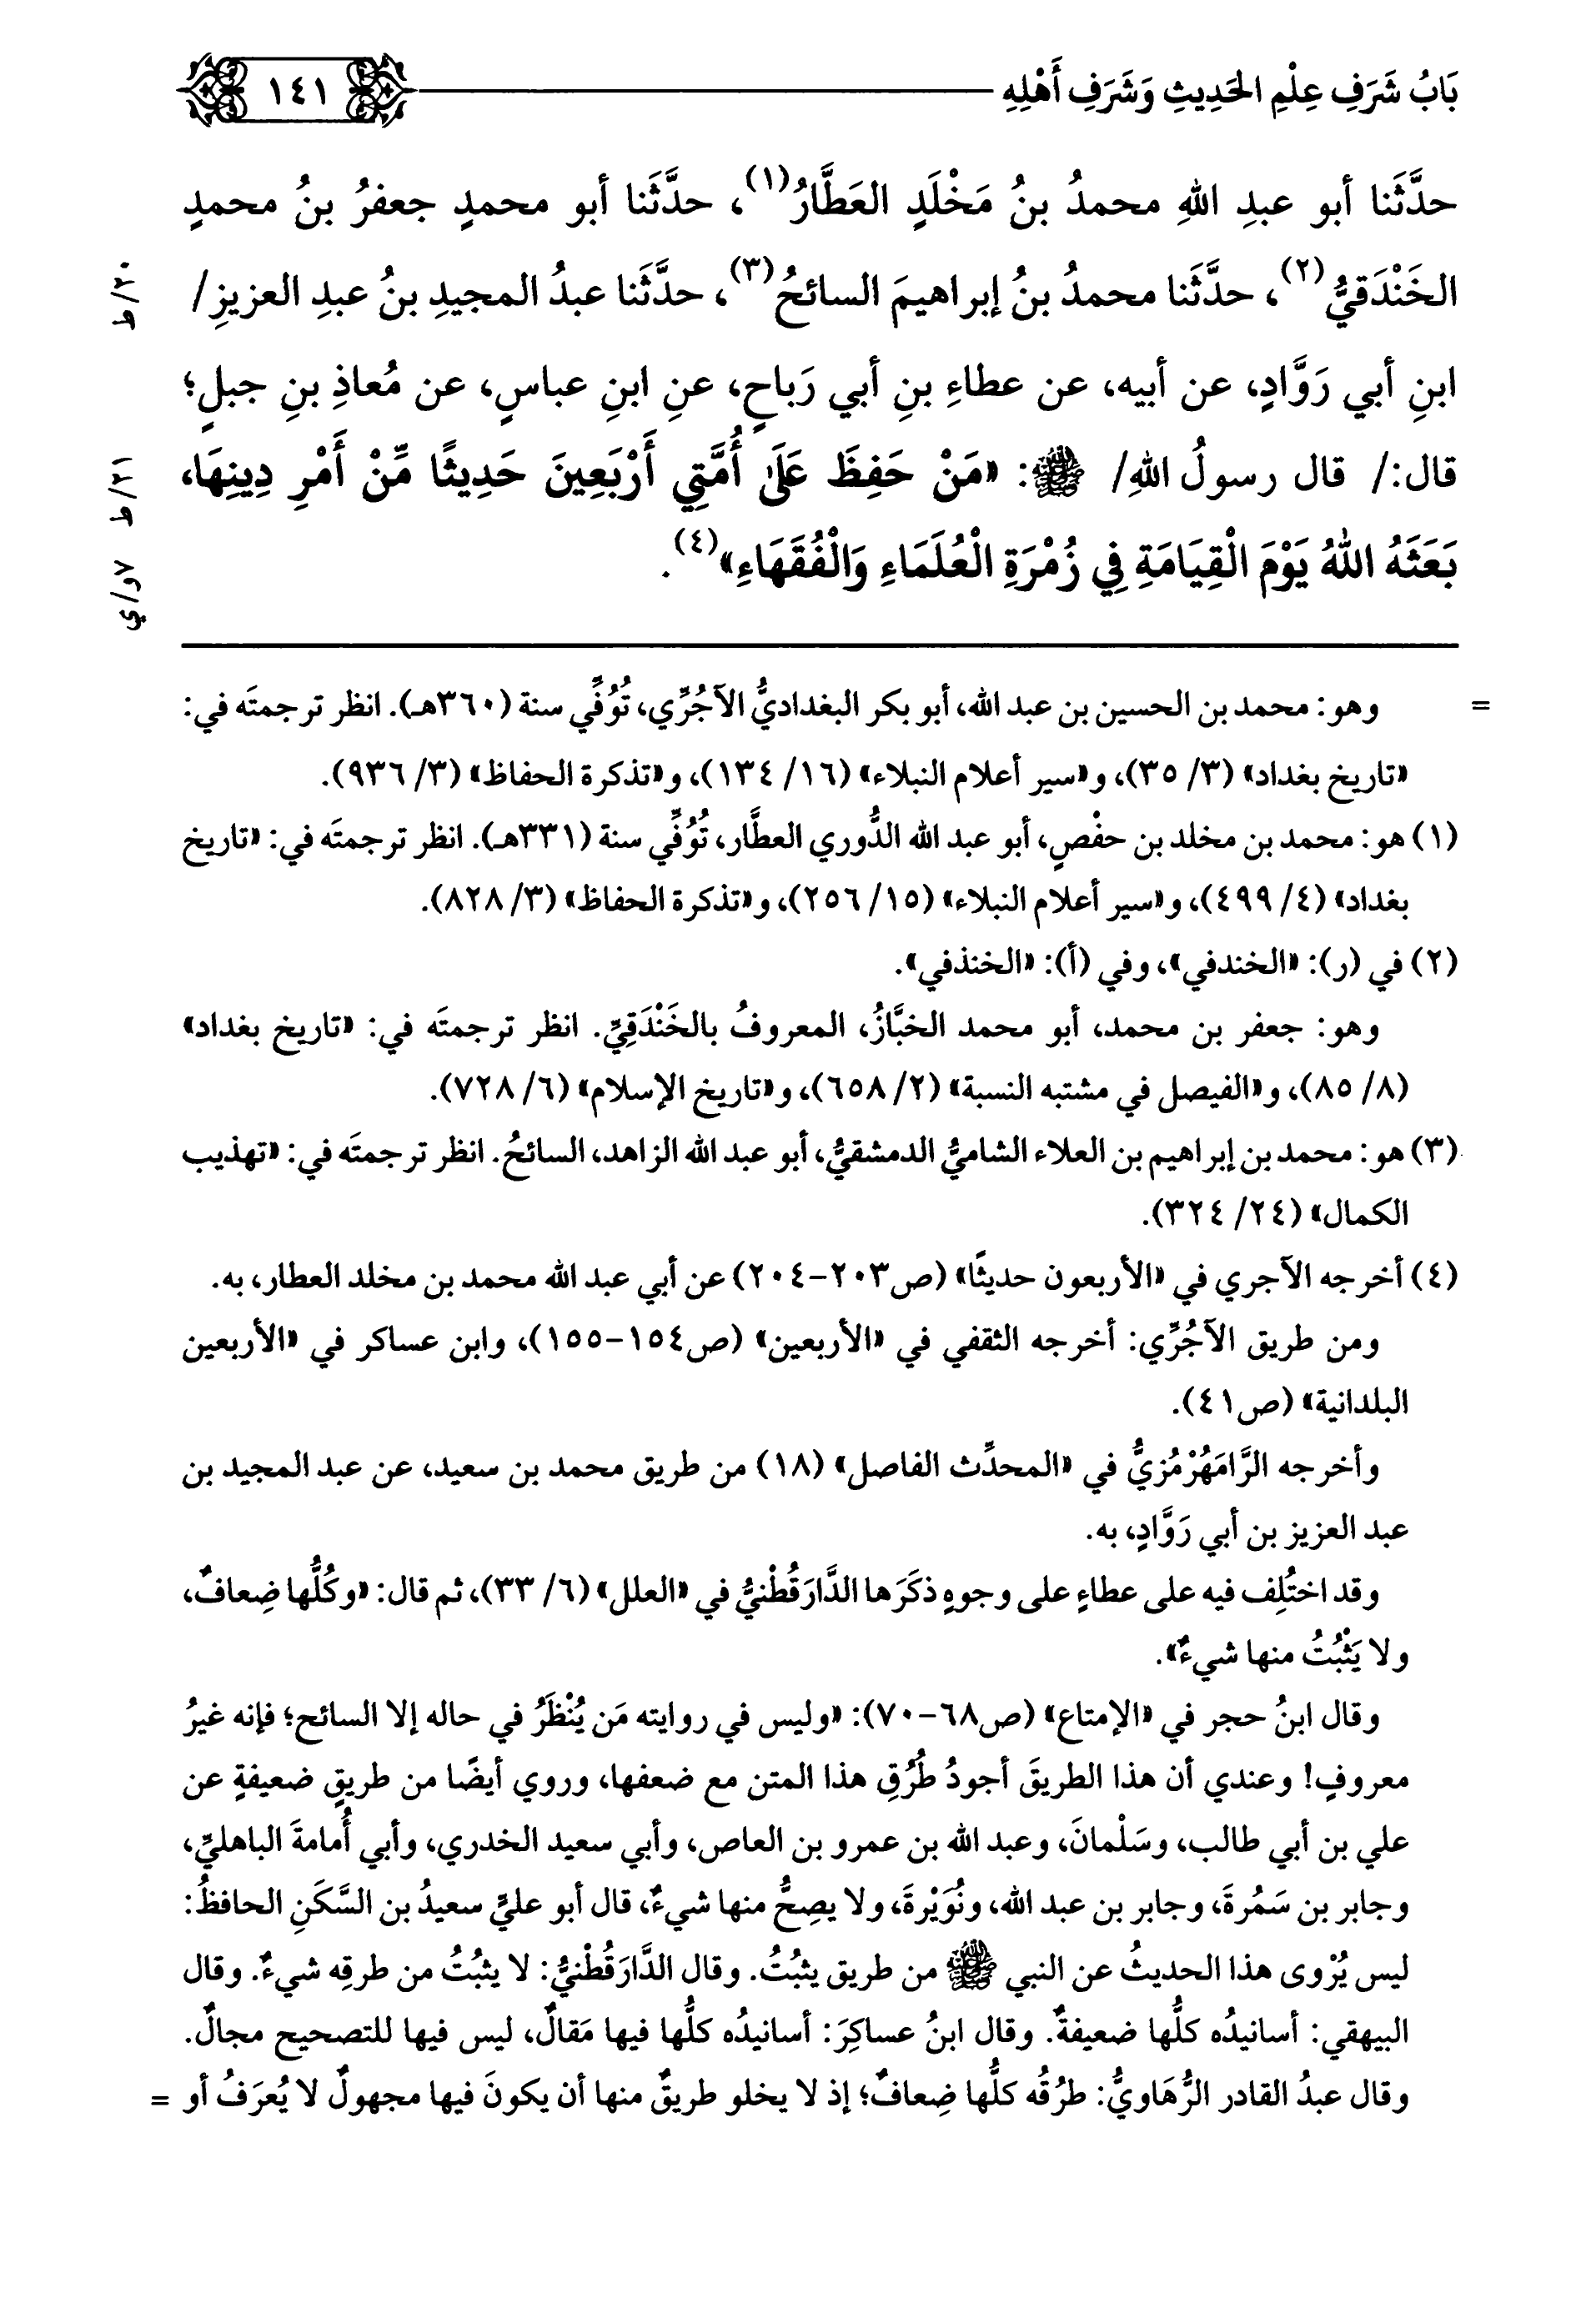 بَابُ شَرَفِ عِلْمِ الحَدِيثِ وَشَرَفِ أَهْلِهِ ١٤١
حدَّثَنا أبو عبدِ اللهِ محمدُ بنُ مَخْلَدٍ العَطَّارُ(١)، حدَّثَنا أبو محمدٍ جعفرُ بنُ محمدٍ
الخَنْدَقيُّ(٢)، حدَّثَنا محمدُ بنُ إبراهيمَ السائحُ(٣)، حدَّثَنا عبدُ المجيدِ بنُ عبدِ العزيزِ/
٢٠/ط
ابنِ أبي رَوَّادٍ، عن أبيه، عن عطاءِ بنِ أبي رَباحٍ، عنِ ابنِ عباسٍ، عن مُعاذِ بنِ جبلٍ؛
قال:/ قال رسولُ اللهِ/ ﷺ: «مَنْ حَفِظَ عَلَىٰ أُمَّتِي أَرْبَعِينَ حَدِيثًا مِّنْ أَمْرِ دِينِهَا،
٢١/ط
بَعَثَهُ اللهُ يَوْمَ الْقِيَامَةِ فِي زُمْرَةِ الْعُلَمَاءِ وَالْفُقَهَاءِ»(٤).
٧و/ي
= وهو: محمد بن الحسين بن عبد الله، أبو بكر البغداديُّ الآجُرِّي، تُوُفِّي سنة (٣٦٠هـ). انظر ترجمتَه في:
«تاريخ بغداد» (٣/ ٣٥)، و«سير أعلام النبلاء» (١٦/ ١٣٤)، و«تذكرة الحفاظ» (٣/ ٩٣٦).
(١) هو: محمد بن مخلد بن حفْصٍ، أبو عبد الله الدُّوري العطَّار، تُوُفِّي سنة (٣٣١هـ). انظر ترجمتَه في: «تاريخ
بغداد» (٤/ ٤٩٩)، و«سير أعلام النبلاء» (١٥/ ٢٥٦)، و«تذكرة الحفاظ» (٣/ ٨٢٨).
(٢) في (ر): «الخندفي»، وفي (أ): «الخنذفي».
وهو: جعفر بن محمد، أبو محمد الخبَّازُ، المعروفُ بالخَنْدَقِيِّ. انظر ترجمتَه في: «تاريخ بغداد»
(٨/ ٨٥)، و«الفيصل في مشتبه النسبة» (٢/ ٦٥٨)، و«تاريخ الإسلام» (٦/ ٧٢٨).
(٣) هو: محمد بن إبراهيم بن العلاء الشاميُّ الدمشقيُّ، أبو عبد الله الزاهد، السائحُ. انظر ترجمتَه في: «تهذيب
الكمال» (٢٤/ ٣٢٤).
(٤) أخرجه الآجري في «الأربعون حديثًا» (ص٢٠٣-٢٠٤) عن أبي عبد الله محمد بن مخلد العطار، به.
ومن طريق الآجُرِّي: أخرجه الثقفي في «الأربعين» (ص١٥٤-١٥٥)، وابن عساكر في «الأربعين
البلدانية» (ص٤١).
وأخرجه الرَّامَهُرْمُزيُّ في «المحدِّث الفاصل» (١٨) من طريق محمد بن سعيد، عن عبد المجيد بن
عبد العزيز بن أبي رَوَّادٍ، به.
وقد اختُلِف فيه على عطاءٍ على وجوهٍ ذكَرَها الدَّارَقُطْنيُّ في «العلل» (٦/ ٣٣)، ثم قال: «وكُلُّها ضِعافٌ،
ولا يَثْبُتُ منها شيءٌ».
وقال ابنُ حجر في «الإمتاع» (ص٦٨-٧٠): «وليس في روايته مَن يُنْظَرُ في حاله إلا السائح؛ فإنه غيرُ
معروفٍ! وعندي أن هذا الطريقَ أجودُ طُرُقِ هذا المتن مع ضعفها، وروي أيضًا من طريقٍ ضعيفةٍ عن
علي بن أبي طالب، وسَلْمانَ، وعبد الله بن عمرو بن العاص، وأبي سعيد الخدري، وأبي أُمامةَ الباهليِّ،
وجابر بن سَمُرةَ، وجابر بن عبد الله، ونُوَيْرةَ، ولا يصِحُّ منها شيءٌ، قال أبو عليٍّ سعيدُ بن السَّكَنِ الحافظُ:
ليس يُرْوى هذا الحديثُ عن النبي ﷺ من طريق يثبُتُ. وقال الدَّارَقُطْنيُّ: لا يثبُتُ من طرقِه شيءٌ. وقال
البيهقي: أسانيدُه كلُّها ضعيفةٌ. وقال ابنُ عساكِرَ: أسانيدُه كلُّها فيها مَقالٌ، ليس فيها للتصحيح مجالٌ.
وقال عبدُ القادر الرُّهَاويُّ: طرُقُه كلُّها ضِعافٌ؛ إذ لا يخلو طريقٌ منها أن يكونَ فيها مجهولٌ لا يُعرَفُ أو =